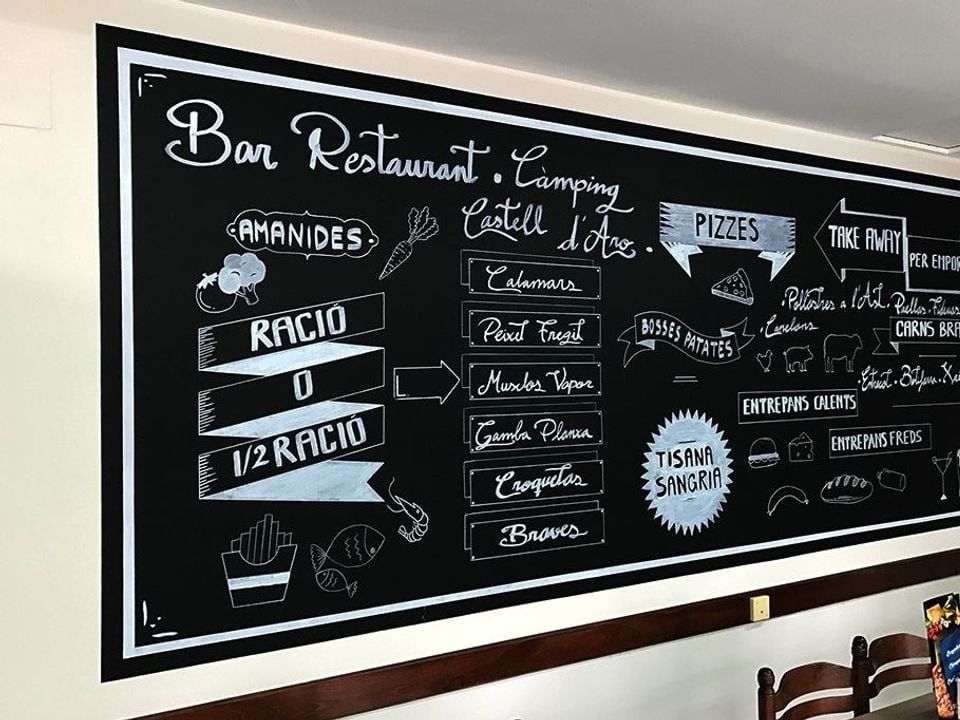 Bar Restaurant . Càmping
Castell d'Aro.
AMANIDES
RACIÓ
O
1/2 RACIÓ
Calamars
Peixit Fregit
Musclos Vapor
Gamba Planxa
Croquetas
Braves
PIZZES
TAKE AWAY
PER EMPOR
BOSSES PATATES
. Pollastres a l'Ast
. Canelons
CARNS BRA
ENTREPANS CALENTS
ENTREPANS FREDS
TISANA
SANGRIA